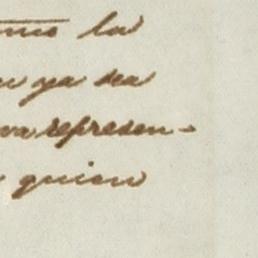 la
ya sea
represen-
quien